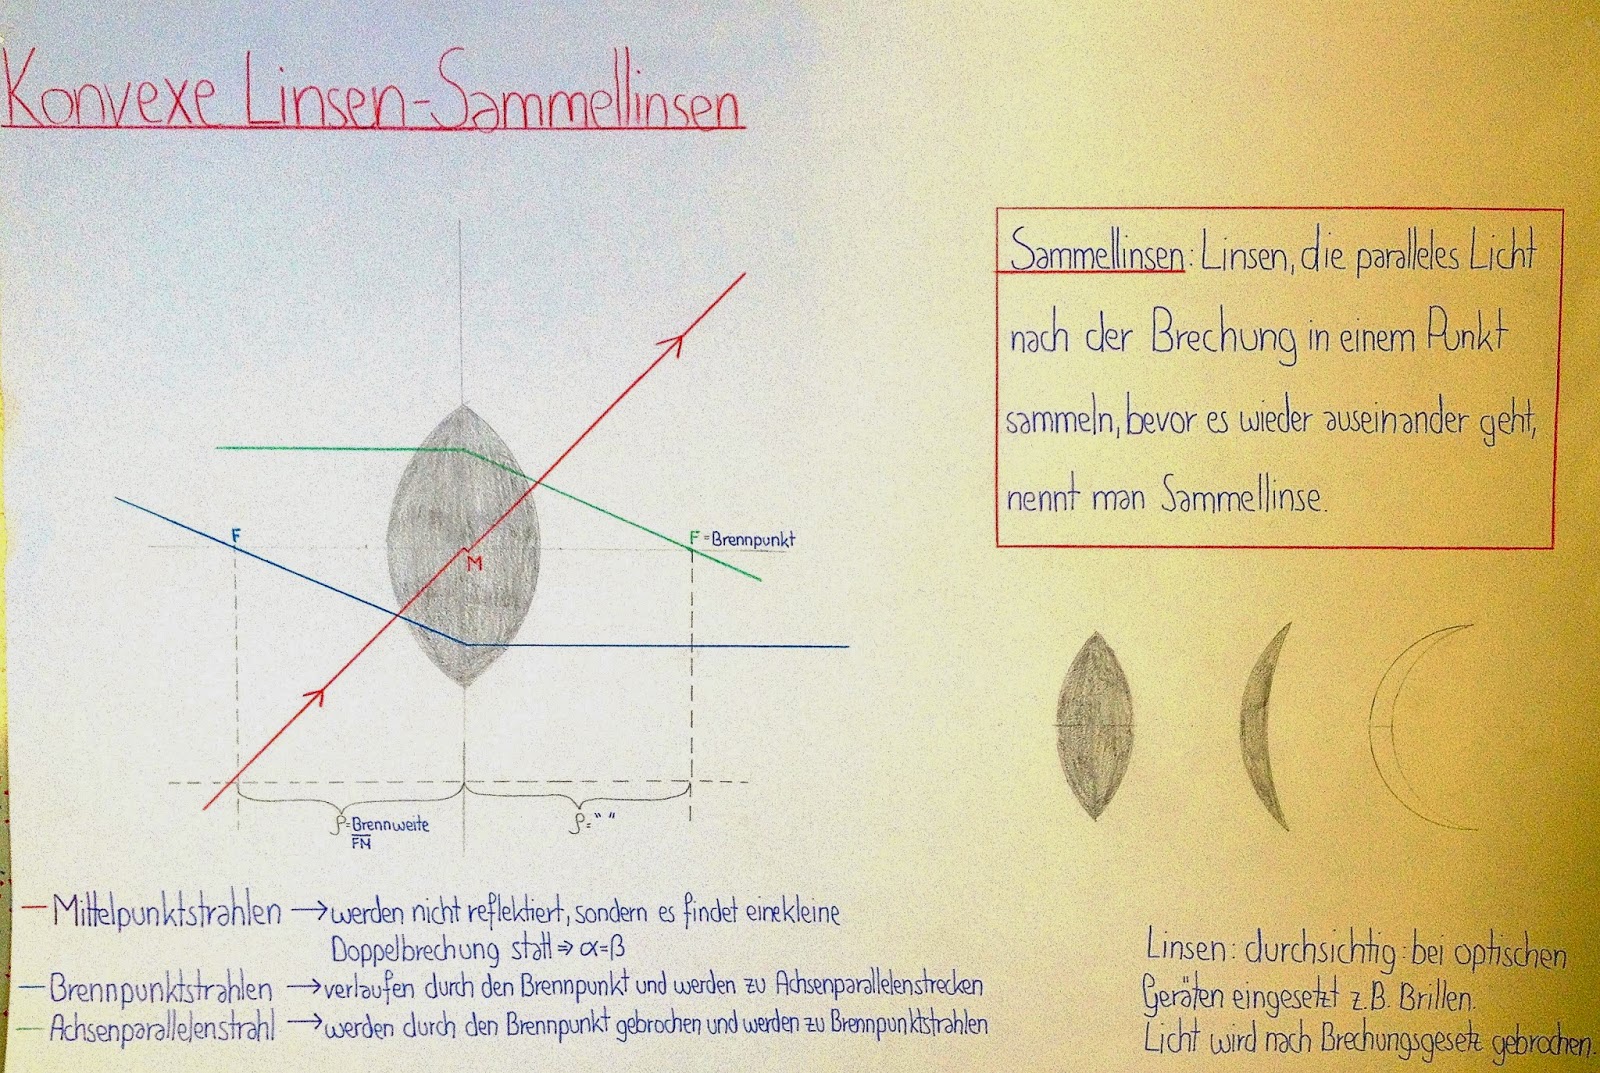 Konvexe Linsen-Sammellinsen
Sammellinsen: Linsen, die paralleles Licht
nach der Brechung in einem Punkt
sammeln, bevor es wieder auseinander geht,
nennt man Sammellinse.
F
F = Brennpunkt
M
f = Brennweite
FM
f = " "
Mittelpunktstrahlen → werden nicht reflektiert, sondern es findet eine kleine
Doppelbrechung statt ⇒ α=β
Brennpunktstrahlen → verlaufen durch den Brennpunkt und werden zu Achsenparallelenstrecken
Achsenparallelenstrahl → werden durch den Brennpunkt gebrochen und werden zu Brennpunktstrahlen
Linsen: durchsichtig: bei optischen
Geräten eingesetzt z.B. Brillen.
Licht wird nach Brechungsgesetz gebrochen.